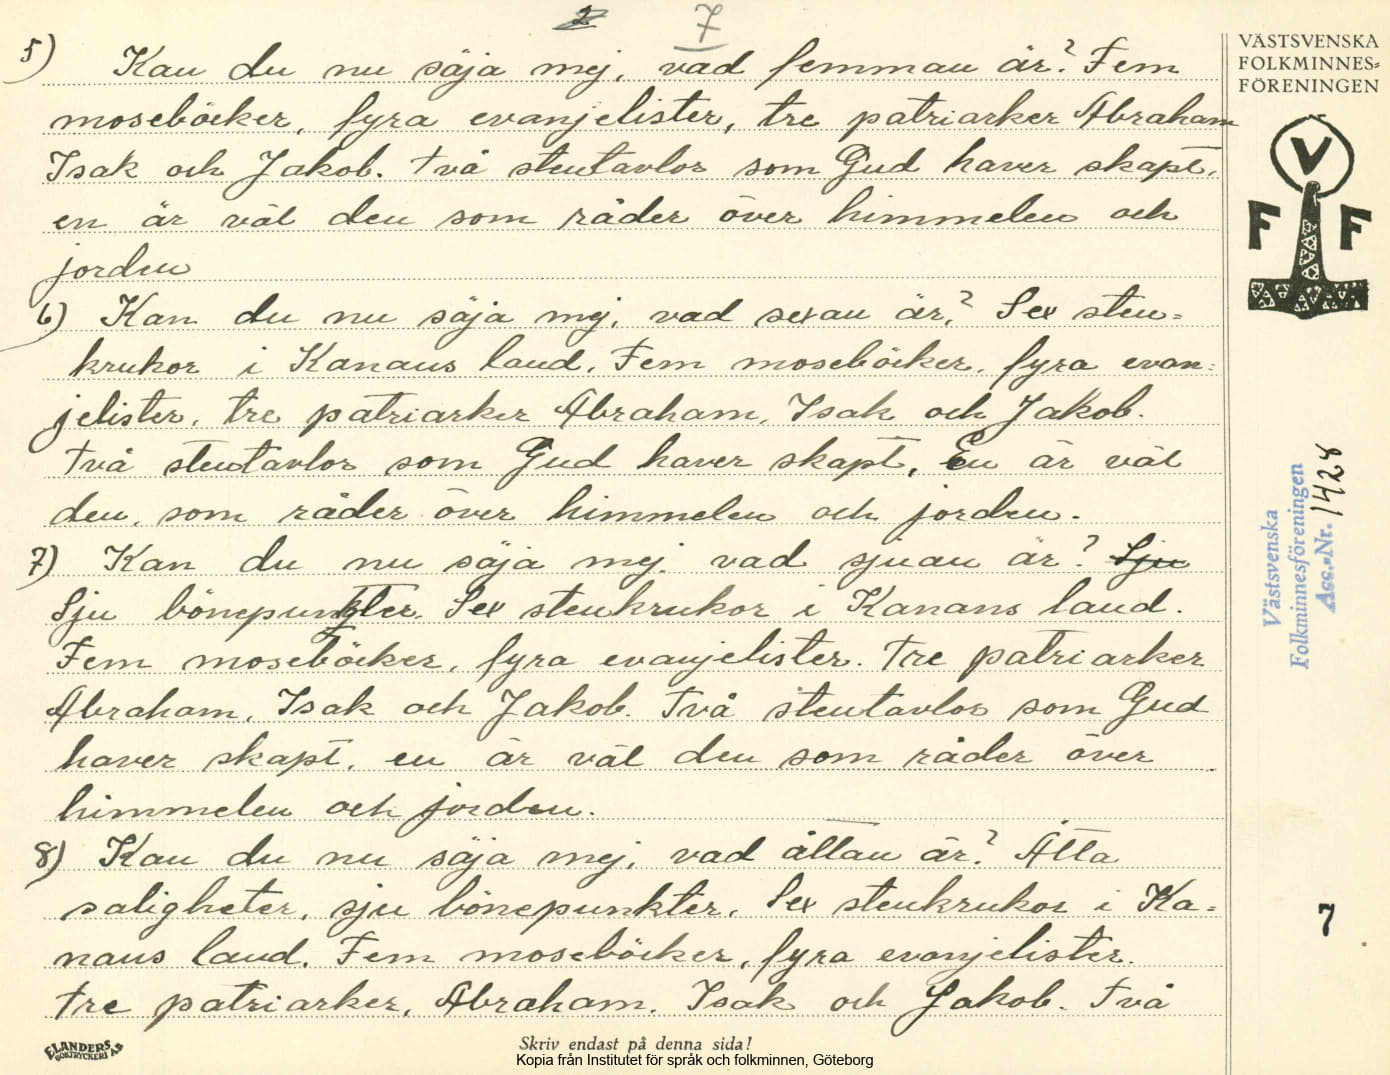 2 7
5) Kan du nu säja mej, vad femman är? Fem
moseböcker, fyra evanjelister, tre patriarker Abraham
Isak och Jakob. två stentavlor som Gud haver skapt,
en är väl den som råder över himmelen och
jorden
6) Kan du nu säja mej, vad sexan är? Sex sten=
krukor i Kanans land. Fem moseböcker, fyra evan=
jelister, tre patriarker Abraham, Isak och Jakob.
två stentavlor som Gud haver skapt, En är väl
den, som råder över himmelen och jorden.
7) Kan du nu säja mej, vad sjuan är? Sju
Sju bönepunkter. Sex stenkrukor i Kanans land.
Fem moseböcker, fyra evanjelister. Tre patriarker
Abraham, Isak och Jakob. Två stentavlor som Gud
haver skapt, en är väl den som råder över
himmelen och jorden.
8) Kan du nu säja mej, vad åttan är? Åtta
saligheter, sju bönepunkter, Sex stenkrukor i Ka=
nans land. Fem moseböcker, fyra evanjelister.
tre patriarker, Abraham, Isak och Jakob. Två
VÄSTSVENSKA
FOLKMINNES=
FÖRENINGEN
V
F F
Västsvenska
Folkminnesföreningen
Acc.-Nr. 1428
7
ELANDERS
BOKTRYCKERI AB
Skriv endast på denna sida!
Kopia från Institutet för språk och folkminnen, Göteborg